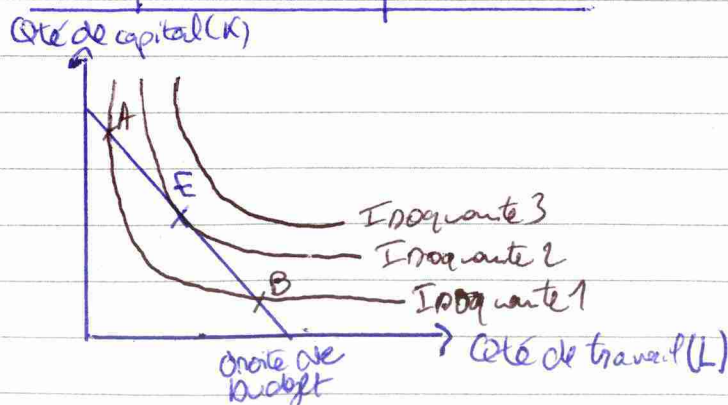 Qté de capital (K)
A
E
Isoquante 3
Isoquante 2
B
Isoquante 1
Qté de travail (L)
droite de
budget